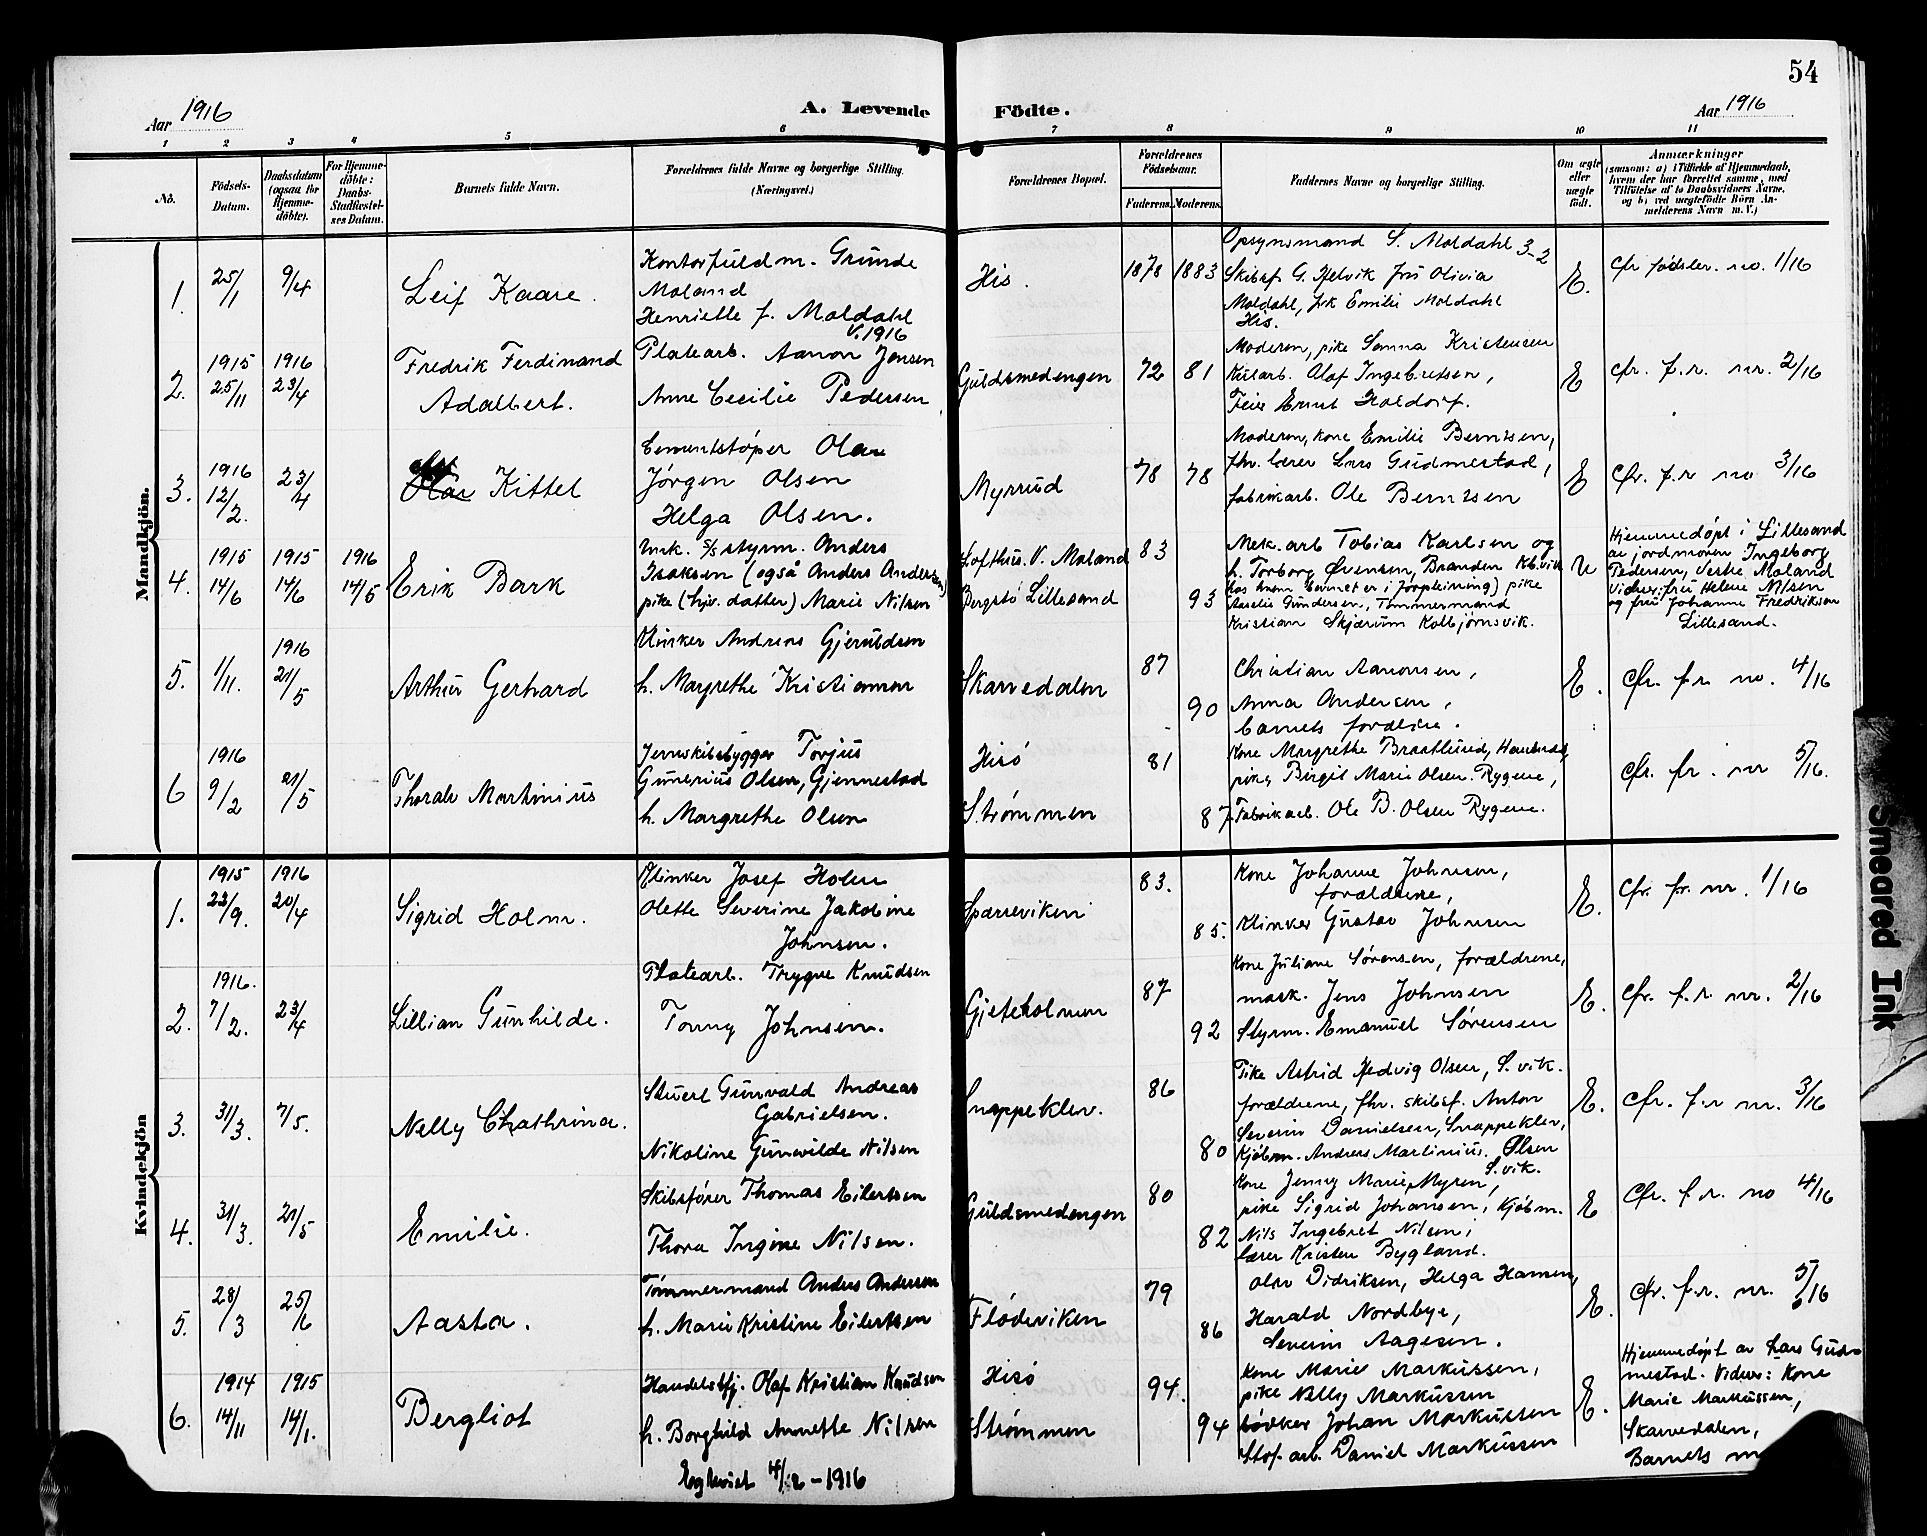 54
Aar 1916
A. Levende Födte.
Aar 1916
1 2 3 4 5 6 7 8 9 10 11
No.
Födsels-
Datum.
Daabsdatum
(ogsaa for
Hjemme-
döbte).
For Hjemme-
döbte:
Daabs-
Stadfæstel-
ses Datum.
Barnets fulde Navn.
Forældrenes fulde Navne og borgerlige Stilling.
(Næringsvei.)
Forældrenes Bopæl.
Forældrenes
Födselsaar.
Faderens. Moderens.
Faddernes Navne og borgerlige Stilling.
Om ægte
eller
uægte
födt.
Anmærkninger
(saasom: a) i Tilfælde af Hjemmedaab,
hvem der har forrettet samme, med
Tilföielse af to Daabsvidners Navne,
og b) ved uægtefödte Börn An-
melderens Navn m. V.)
Mandkjön.
1.
25/1
9/4
Leif Kaare.
Kontorfuldm. Gunde
Moland
Henriette f. Moldahl
V. 1916
His.
1878 1883
Opsynsmand S. Moldahl 3-2
Skibsf. G. Helvik fru Olivia
Moldahl, frk Emilie Moldahl
His.
E.
Cfr fødsler. no. 1/16
2.
1915
25/11
1916
23/4
Fredrik Ferdinand
Adalbert.
Platearb. Aanon Jensen
Anne Cecilie Pedersen
Guldsmedengen
72 81
Moderen, pike Kristensen
Kularb. Olaf Ingebretsen,
Feier Ernst Holdorf.
E
Cfr. f.r. nr. 2/16
3.
1916
12/2.
23/4
Olav Kittel
Cementstøper Olav
Jørgen Olsen
Helga Olsen.
Myrrud
78 78
Moderen, kone Emilie Berntsen,
fhv. lærer Lars Gudmestad,
fabrikarb. Ole Berntsen
E
Cfr. f.r no 3/16
4.
1915
14/6
1915
14/6
1916
14/5
Erik Bark
Umk. S/S styrm. Anders
Isaksen (også Anders Andersen)
pike (hjv. datter) Marie Nilsen
Lofthus. V. Moland
Bergstø Lillesand
83
93
Mek. arb Tobias Karlsen og
h. Torborg Svensen, Branden Kb.vik
(hos hvem barnet er i forpleining) pike
Aaselie Gundersen, Tømmermand
Kristian Skjærum Kolbjørnsvik.
U
Hjemmedøpt i Lillesand
av jordmoren Ingeborg
Pedersen, Vestre Moland
Vidner: fru Helene Nilsen
og fru Johanne Fredriksen
Lillesand.
5.
1/11.
1916
21/5
Arthur Gerhard
Klinker Andreas Gjeruldsen
h. Margrethe Kristiansen
Skarvedalen
87
90
Christian Aanonsen,
Anna Andersen,
barnets foreldre.
E.
Cfr. f.r. no. 4/16
6
1916
9/2
21/5
Thoralv Martinius
Jernskibsbygger Torjus
Gunerius Olsen, Gjennestad
h. Margrethe Olsen
Hisø
Strømmen
81
87
Kone Margrethe Braatlund,
pike, Birgit Marie Olsen. Rygene,
Fabrikarb. Ole B. Olsen Rygene.
Cfr. fr. nr 5/16.
Kvindekjön
1.
1915
22/9.
1916
20/4
Sigrid Holm.
Klinker Josef Holm
Olette Severine Jakobine
Johnsen.
Sparreviken
83.
85.
Kone Johanne Johnsen,
forældrene,
Klinker Gustav Johnsen
E.
Cfr. fr. nr. 1/16
2.
1916.
7/2.
23/4
Lillian Gunhilde.
Platearb. Trygve Knudsen
Tonny Johnsen.
Gjeteholmen
87
92
Kone Juliane Sørensen, forældrene,
mask. Jens Johnsen
Styrm. Emanuel Sørensen
E.
Cfr. f.r. nr. 2/16
3.
31/3.
7/5.
Nelly Chathrina.
Stuert Gunvald Andreas
Gabrielsen.
Nikoline Gunvilde Nilsen
Snappeklev.
86
80
Pike Astrid Hedvig Olsen, S.vik.
forældrene, fhv. skibsf. Anton
Severin Danielsen, Snappeklev,
Kjøbm. Andreas Martinius Olsen
S.vik.
E.
Cfr. f.r nr. 3/16
4.
31/3.
21/5
Emilie.
Skibsfører Thomas Eilertsen
Thora Ingine Nilsen.
Guldsmedengen
80
82
Kone Jenny Marie Myren,
pike Sigrid Johansen, Kjøbm.
Nils Ingebret Nilsen,
lærer Kristen Bygland.
E
Cfr. f.r. no 4/16
5.
28/3
25/6
Aasta.
Tømmermand Anders Andersen
h. Marie Kristine Eilertsen
Flødeviken
79
86
Olav Didriksen, Helga Hansen,
Harald Nordbye,
Severin Aagesen.
E.
Cfr. f.r. nr. 5/16
6.
1914
14/11
1915
14/1.
Bergliot
Handelsbfj. Olaf Kristian Knudsen
h. Borghild Annette Nilsen
Hisø
Strømmen
94.
94
Kone Marie Markussen,
pike Nelly Markussen
bødker Johan Markussen
Støf. arb. Daniel Markussen
E.
Hjemmedøpt av Lars Gud-
mestad. Vidner: Kone
Marie Markussen,
Skarvedalen,
Barnets m
4/12-1916
Smeared Ink